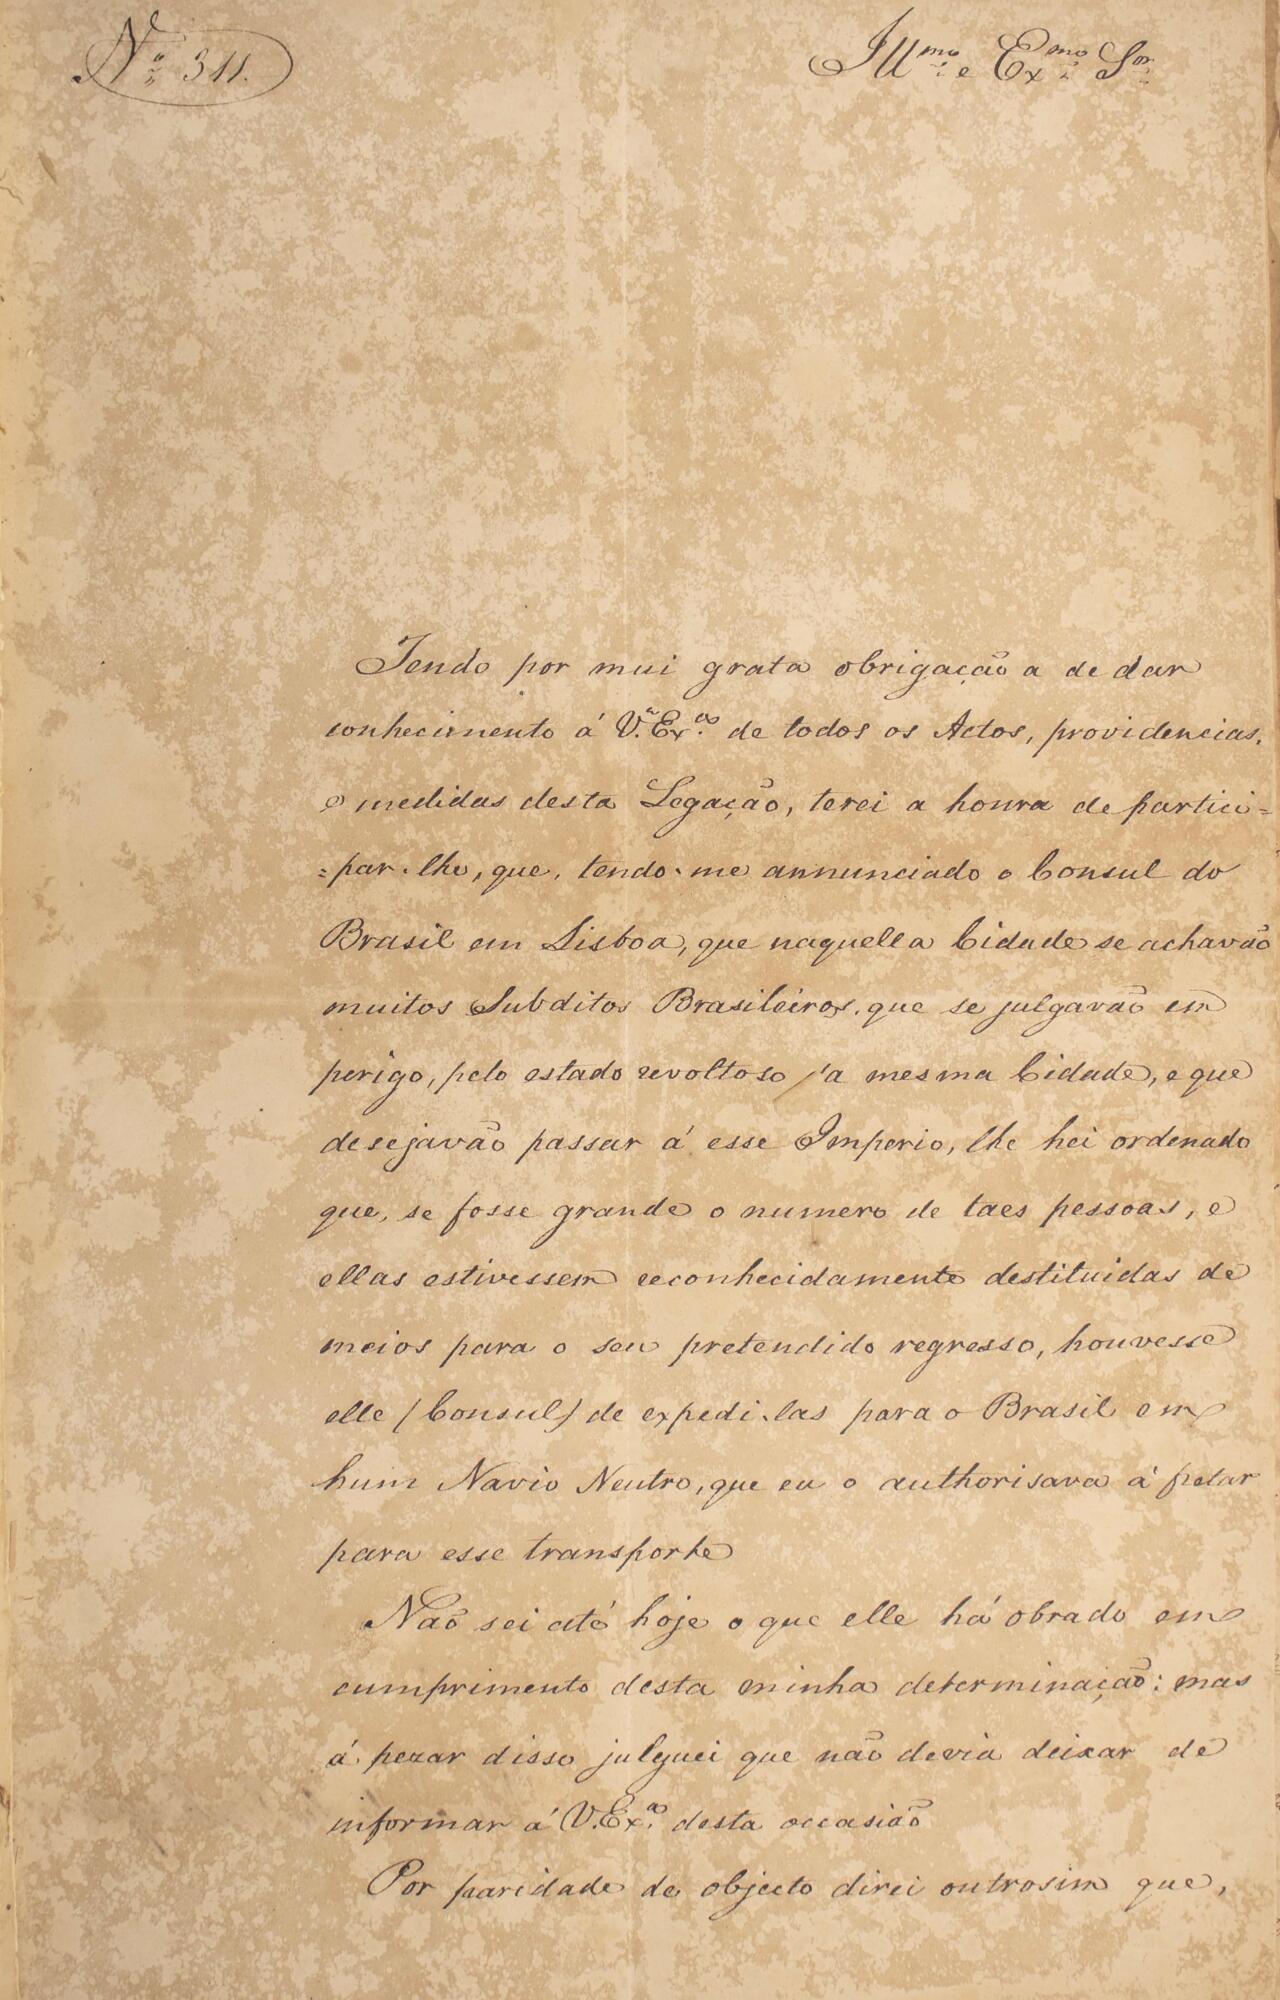 Nº 311.
Illmo e Exmo Sor
Tendo por mui grata obrigação a de dar
conhecimento á V.ª Ex.ª de todos os Actos, providencias,
e medidas desta Legação, terei a honra de partici=
=par-lhe, que, tendo-me annunciado o Consul do
Brasil em Lisboa, que naquella Cidade se achavão
muitos Subditos Brasileiros, que se julgavão em
perigo, pelo estado revoltoso da mesma Cidade, e que
desejavão passar á esse Imperio, lhe hei ordenado
que, se fosse grande o numero de taes pessoas, e
ellas estivessem reconhecidamente destituidas de
meios para o seu pretendido regresso, houvesse
elle (Consul) de expedi-las para o Brasil em
hum Navio Neutro, que eu o authorisava á fretar
para esse transporte
Não sei até hoje o que elle há obrado em
cumprimento desta minha determinação: mas
á pezar disso julguei que não devia deixar de
informar á V. Ex.ª desta occasião
Por paridade de objecto direi outrosim que,